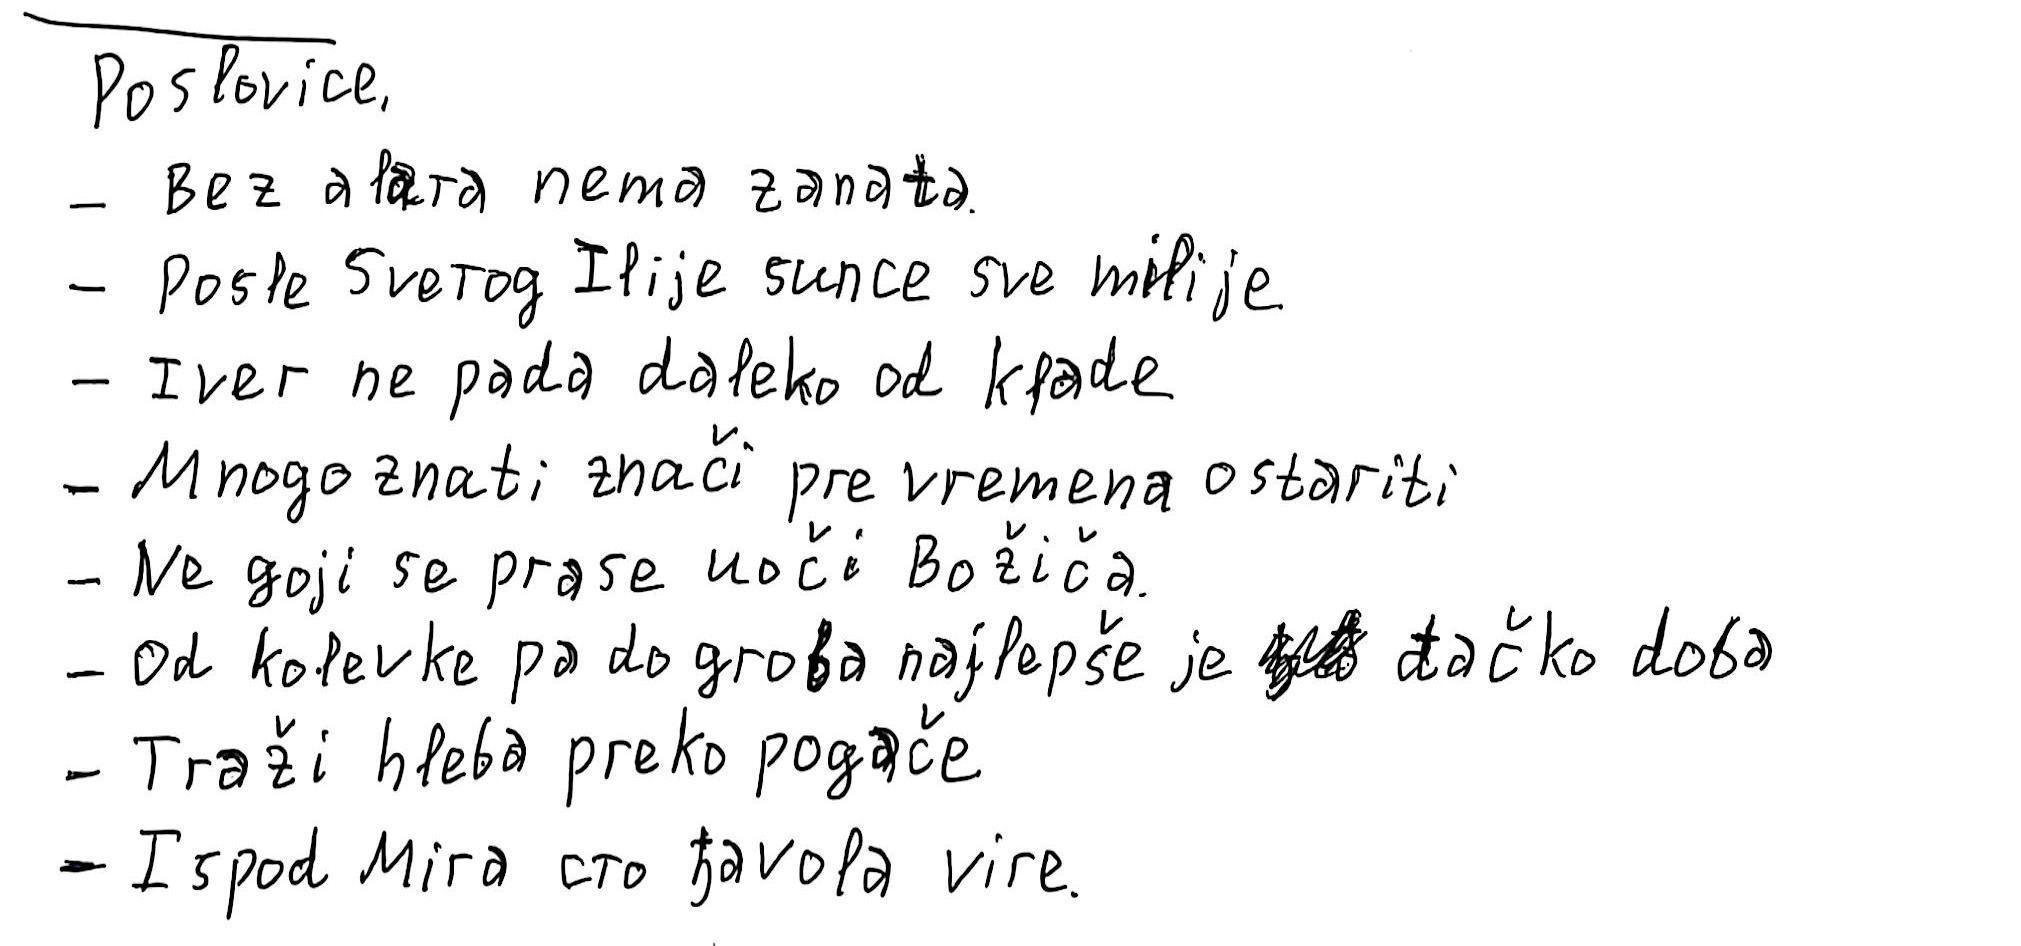 Poslovice.
- Bez alata nema zanata.
- Posle Svetog Ilije sunce sve milije
- Iver ne pada daleko od klade
- Mnogo znati znači pre vremena ostariti
- Ne goji se prase uoči Božiča.
- Od kolevke pa do groba najlepše je đačko doba
- Traži hleba preko pogače
- Ispod Mira сто ђavola vire.